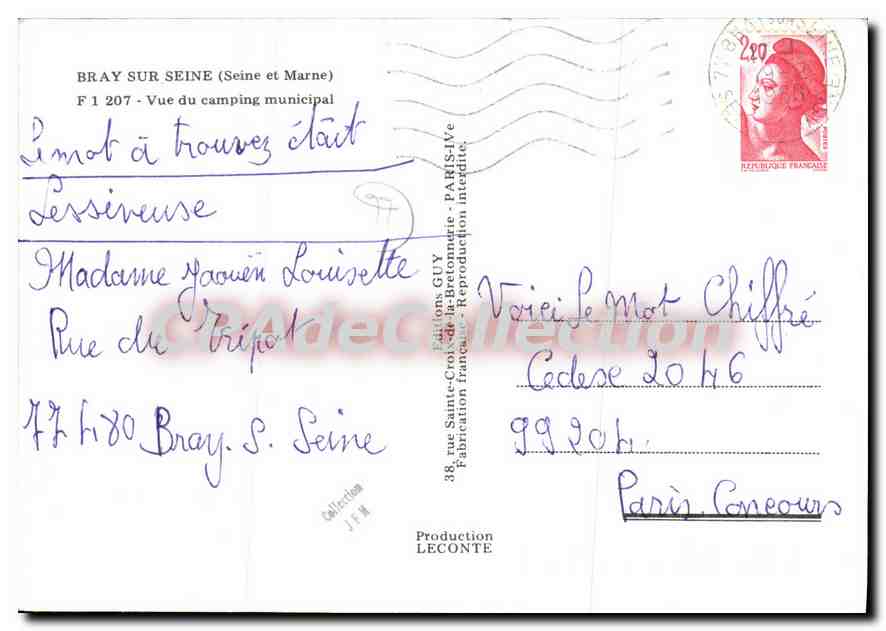 BRAY SUR SEINE (Seine et Marne)
F 1 207 - Vue du camping municipal
Le mot à trouvez étâit
Lessiveuse
Madame Jaouën Louisette
Rue du Tripot
77480 Bray. S. Seine
77
Collection
J F M
Editions GUY
38, rue Sainte-Croix-de-la-Bretonnerie - PARIS-IVe
Fabrication française - Reproduction interdite.
Production
LECONTE
2,20
POSTES
REPUBLIQUE FRANÇAISE
Voici Le Mot Chiffré
Cedexe 2046
99204.
Paris. Concours
CPAdeCollection